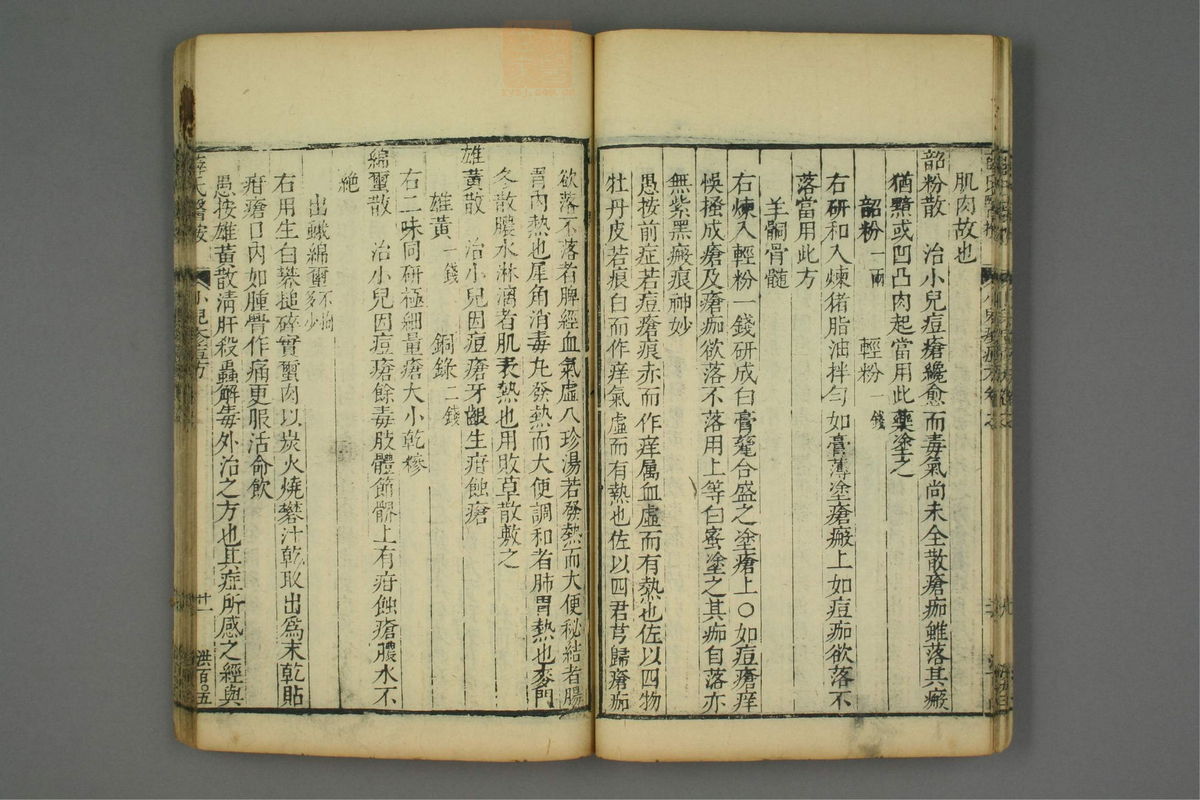 肌肉故也
韶粉散　治小兒痘瘡纔愈而毒氣尚未全散瘡痂雖落其瘢
猶黯或凹凸肉起當用此藥塗之
韶粉一兩　輕粉一錢
右研和入煉猪脂油拌勻如膏薄塗瘡瘢上如痘痂欲落不
落當用此方
羊䯊骨髓
右煉入輕粉一錢研成白膏甆合盛之塗瘡上○如痘瘡痒
悞搔成瘡及瘡痂欲落不落用上等白蜜塗之其痂自落亦
無紫黑瘢痕神妙
愚按前症若痘瘡痕赤而作痒屬血虛而有熱也佐以四物
牡丹皮若痕白而作痒氣虛而有熱也佐以四君芎歸瘡痂
欲落不落者脾經血氣虛八珍湯若發熱而大便秘結者腸
胃內熱也犀角消毒丸發熱而大便調和者肺胃熱也麥門
冬散膿水淋漓者肌表熱也用敗草散敷之
雄黃散　治小兒因痘瘡牙齦生疳蝕瘡
雄黃一錢　銅綠二錢
右二味同研極細量瘡大小乾糝
綿蠒散　治小兒因痘瘡餘毒肢體節髎上有疳蝕瘡膿水不
絶
出蛾綿蠒不拘多少
右用生白礬搥碎實蠒內以炭火燒礬汁乾取出爲末乾貼
疳瘡口內如腫脣作痛更服活命飲
愚按雄黃散清肝殺蟲解毒外治之方也其症所感之經與
薛氏醫按　小兒　痘方　十一　洪百○五